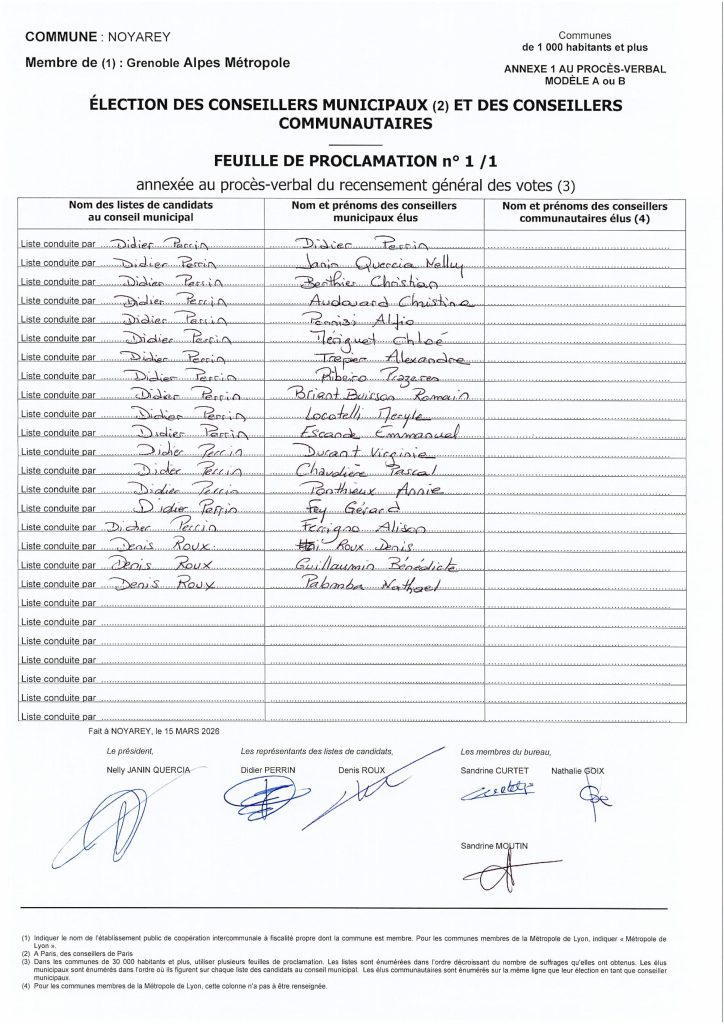 COMMUNE : NOYAREY
Communes
de 1 000 habitants et plus
Membre de (1) : Grenoble Alpes Métropole
ANNEXE 1 AU PROCÈS-VERBAL
MODÈLE A ou B
ÉLECTION DES CONSEILLERS MUNICIPAUX (2) ET DES CONSEILLERS
COMMUNAUTAIRES
FEUILLE DE PROCLAMATION n° 1 /1
annexée au procès-verbal du recensement général des votes (3)
Nom des listes de candidats au conseil municipal
Nom et prénoms des conseillers municipaux élus
Nom et prénoms des conseillers communautaires élus (4)
Liste conduite par Didier Perrin Didier Perrin
Liste conduite par Didier Perrin Janin Quercia Nelly
Liste conduite par Didier Perrin Berthier Christian
Liste conduite par Didier Perrin Audouard Christine
Liste conduite par Didier Perrin Pennisi Alfio
Liste conduite par Didier Perrin Mériguet Chloé
Liste conduite par Didier Perrin Trepier Alexandre
Liste conduite par Didier Perrin Ribeiro Prazeres
Liste conduite par Didier Perrin Briant Buisson Romain
Liste conduite par Didier Perrin Locatelli Meryle
Liste conduite par Didier Perrin Escande Emmanuel
Liste conduite par Didier Perrin Durant Virginie
Liste conduite par Didier Perrin Chaudière Pascal
Liste conduite par Didier Perrin Ponthieux Annie
Liste conduite par Didier Perrin Fey Gérard
Liste conduite par Didier Perrin Ferrigno Alison
Liste conduite par Denis Roux Roux Denis
Liste conduite par Denis Roux Guillaumin Bénédicte
Liste conduite par Denis Roux Palomba Nathael
Liste conduite par
Liste conduite par
Liste conduite par
Liste conduite par
Liste conduite par
Liste conduite par
Liste conduite par
Fait à NOYAREY, le 15 MARS 2026
Le président,
Les représentants des listes de candidats,
Les membres du bureau,
Nelly JANIN QUERCIA
Didier PERRIN
Denis ROUX
Sandrine CURTET
Nathalie GOIX
Sandrine MOUTIN
(1) Indiquer le nom de l'établissement public de coopération intercommunale à fiscalité propre dont la commune est membre. Pour les communes membres de la Métropole de Lyon, indiquer « Métropole de
Lyon ».
(2) A Paris, des conseillers de Paris
(3) Dans les communes de 30 000 habitants et plus, utiliser plusieurs feuilles de proclamation. Les listes sont énumérées dans l'ordre décroissant du nombre de suffrages qu'elles ont obtenus. Les élus
municipaux sont énumérés dans l'ordre où ils figurent sur chaque liste des candidats au conseil municipal. Les élus communautaires sont énumérés sur la même ligne que leur élection en tant que conseiller
municipaux.
(4) Pour les communes membres de la Métropole de Lyon, cette colonne n'a pas à être renseignée.